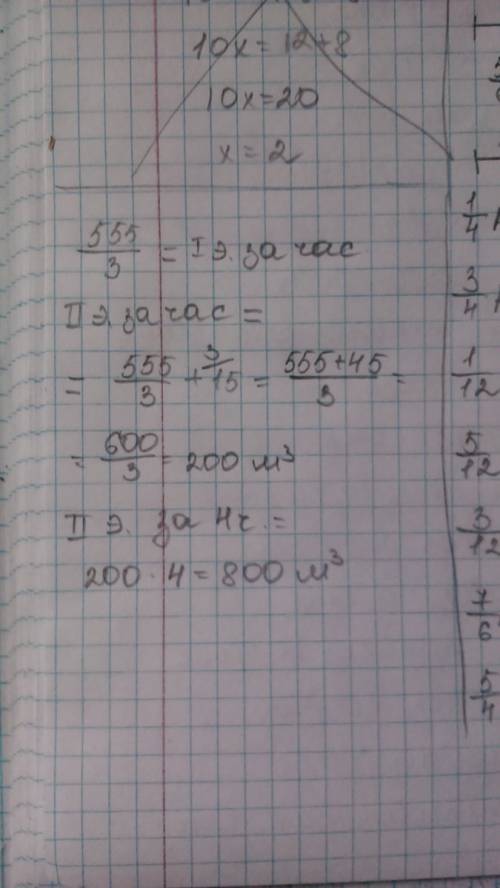 10x = 12+8
10x = 20
x = 2
555/3 = I э. за час
II э. за час =
= 555/3 + 3/15 = 555+45/3 =
= 600/3 = 200 м³
II э. за 4ч. =
200 · 4 = 800 м³
1/4
3/4
1/12
5/12
3/12
7/6
5/4